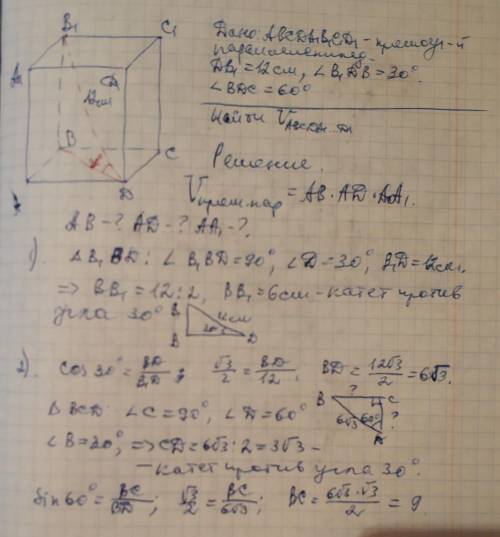 B₁ C₁
A₁ D₁
12см
B C
D
Дано: ABCDA₁B₁C₁D₁ - прямоуг-й
параллелепипед.
DB₁ = 12 см, ∠B₁DB = 30°.
∠BDC = 60°
Найти V
Решение.
V прям.пар = AB · AD · AA₁.
AB - ? AD - ? AA₁ - ?
1) Δ B₁BD: ∠ B₁BD = 90°, ∠D = 30°, B₁D = 12см,
=> BB₁ = 12 : 2, BB₁ = 6 см - катет против
угла 30°
B₁ 12см
B 30° D
2) cos 30° = BD/B₁D; √3/2 = BD/12; BD = 12√3/2 = 6√3.
Δ BCD: ∠C = 90°, ∠D = 60°
B ? C
6√3 60° ?
∠B = 30°, => CD = 6√3 : 2 = 3√3 -
- катет против угла 30°.
sin 60° = BC/BD; √3/2 = BC/6√3; BC = 6√3·√3/2 = 9